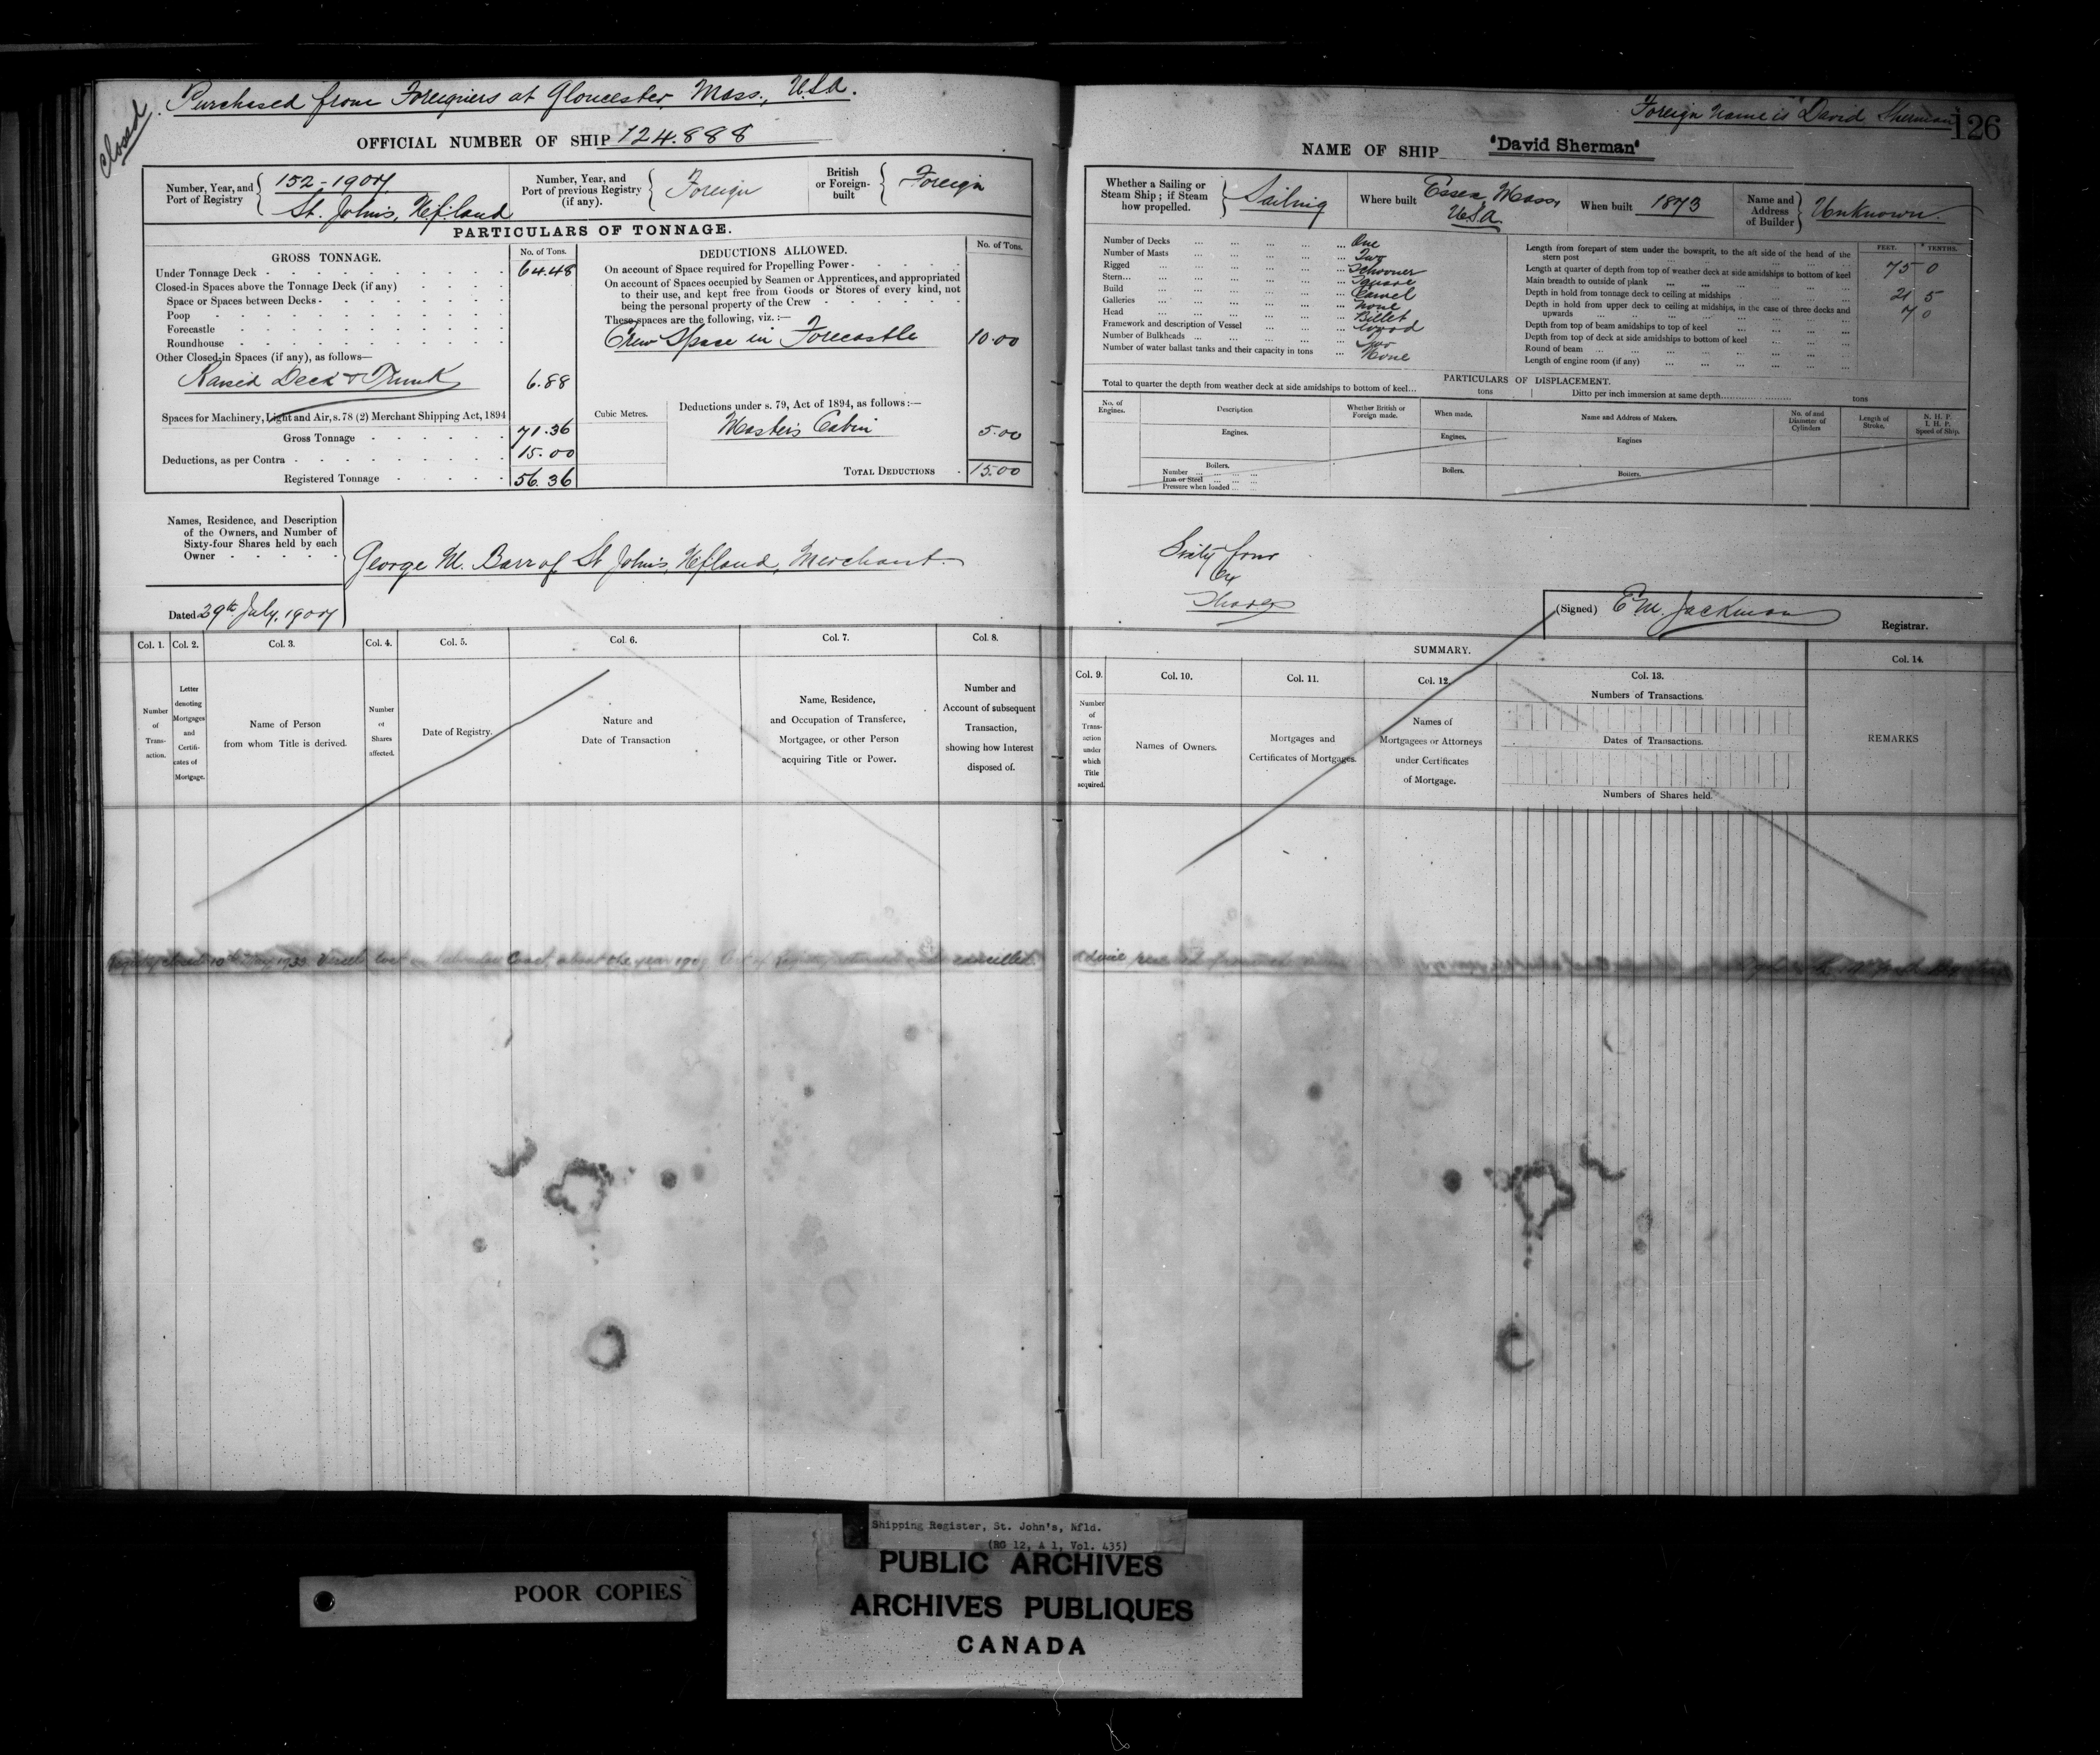 Closed
Purchased from Foreigners at Gloucester Mass., USA.
OFFICIAL NUMBER OF SHIP 124.888
Number, Year, and Port of Registry
152-1907
St. John's, Nfland
Number, Year, and Port of previous Registry (if any).
Foreign
British or Foreign-built
Foreign
PARTICULARS OF TONNAGE.
GROSS TONNAGE. No. of Tons.
Under Tonnage Deck 64.48
Closed-in Spaces above the Tonnage Deck (if any)
Space or Spaces between Decks
Poop
Forecastle
Roundhouse
Other Closed-in Spaces (if any), as follows—
Raised Deck & Trunk 6.88
Spaces for Machinery, Light and Air, s. 78 (2) Merchant Shipping Act, 1894
Gross Tonnage 71.36
Deductions, as per Contra 15.00
Registered Tonnage 56.36
DEDUCTIONS ALLOWED. No. of Tons.
On account of Space required for Propelling Power
On account of Spaces occupied by Seamen or Apprentices, and appropriated
to their use, and kept free from Goods or Stores of every kind, not
being the personal property of the Crew
These spaces are the following, viz.:—
Crew Space in Forecastle 10.00
Cubic Metres.
Deductions under s. 79, Act of 1894, as follows:—
Master's Cabin 5.00
TOTAL DEDUCTIONS 15.00
Names, Residence, and Description
of the Owners, and Number of
Sixty-four Shares held by each
Owner
George M. Barr of St Johns, Nfland, Merchant.
Dated 29th July, 1907
Col. 1. Col. 2. Col. 3. Col. 4. Col. 5. Col. 6. Col. 7. Col. 8.
Number of Transaction.
Letter denoting Mortgages and Certificates of Mortgage.
Name of Person from whom Title is derived.
Number of Shares affected.
Date of Registry.
Nature and Date of Transaction
Name, Residence, and Occupation of Transferee, Mortgagee, or other Person acquiring Title or Power.
Number and Account of subsequent Transaction, showing how Interest disposed of.
Foreign Name is "David Sherman"
126
NAME OF SHIP "David Sherman"
Whether a Sailing or Steam Ship; if Steam how propelled.
Sailing
Where built
Essex, Mass, USA.
When built 1873
Name and Address of Builder
Unknown.
Number of Decks One
Number of Masts Two
Rigged Schooner
Stern Square
Build Carvel
Galleries None
Head Billet
Framework and description of Vessel Wood
Number of Bulkheads Two
Number of water ballast tanks and their capacity in tons None
FEET. TENTHS.
Length from forepart of stem under the bowsprit, to the aft side of the head of the stern post 75 0
Length at quarter of depth from top of weather deck at side amidships to bottom of keel
Main breadth to outside of plank 21 5
Depth in hold from tonnage deck to ceiling at midships 7 0
Depth in hold from upper deck to ceiling at midships, in the case of three decks and upwards
Depth from top of beam amidships to top of keel
Depth from top of deck at side amidships to bottom of keel
Round of beam
Length of engine room (if any)
PARTICULARS OF DISPLACEMENT.
Total to quarter the depth from weather deck at side amidships to bottom of keel... tons
Ditto per inch immersion at same depth... tons
No. of Engines.
Description
Whether British or Foreign made.
When made.
Name and Address of Makers.
No. of and Diameter of Cylinders
Length of Stroke.
N. H. P. I. H. P. Speed of Ship.
Engines. Engines. Engines
Boilers. Boilers. Boilers.
Number
Iron or Steel
Pressure when loaded
Sixty four
64
Shares
(Signed) E M. Jackman
Registrar.
SUMMARY.
Col. 9. Col. 10. Col. 11. Col. 12. Col. 13. Col. 14.
Number of Transaction under which Title acquired.
Names of Owners.
Mortgages and Certificates of Mortgages.
Names of Mortgagees or Attorneys under Certificates of Mortgage.
Numbers of Transactions.
Dates of Transactions.
Numbers of Shares held.
REMARKS
closed 10th Vessel lost on Coast, about the year cancelled.
POOR COPIES
Shipping Register, St. John's, Nfld.
(RG 12, A 1, Vol. 435)
PUBLIC ARCHIVES
ARCHIVES PUBLIQUES
CANADA